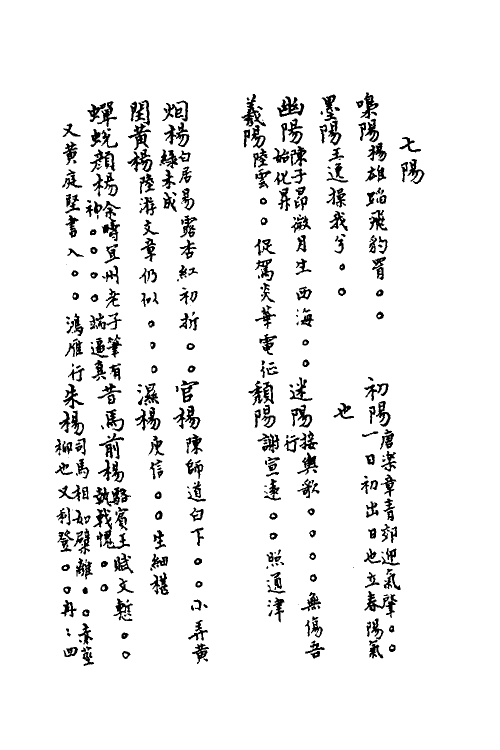 七陽
嘄陽 揚雄蹈飛豹罥。。 初陽 唐樂章青郊迎氣肇。。一日初出日也立春陽氣
也
墨陽 王逸操我兮。。
幽陽 陳子昂微月生西海。。始化昇 迷陽 接輿歌。。。。無傷吾行
羲陽 陸雲。。促駕炎華電征 頹陽 謝宣遠。。照通津
烟楊 白居易露杏紅初折。。綠未成 官楊 陳師道白下。。小弄黃
閏黃楊 陸游文章仍似。。。 濕楊 庾信。。生細椹
蟬蛻顏楊 余時宜州老子筆有神。。。。端逼真 昔馬前楊 駱賓王賦文慙。。執戟愧。。
又黃庭堅書入。。鴻雁行 朱楊 司馬相如檗離。。赤莖柳也又利登。。再：四